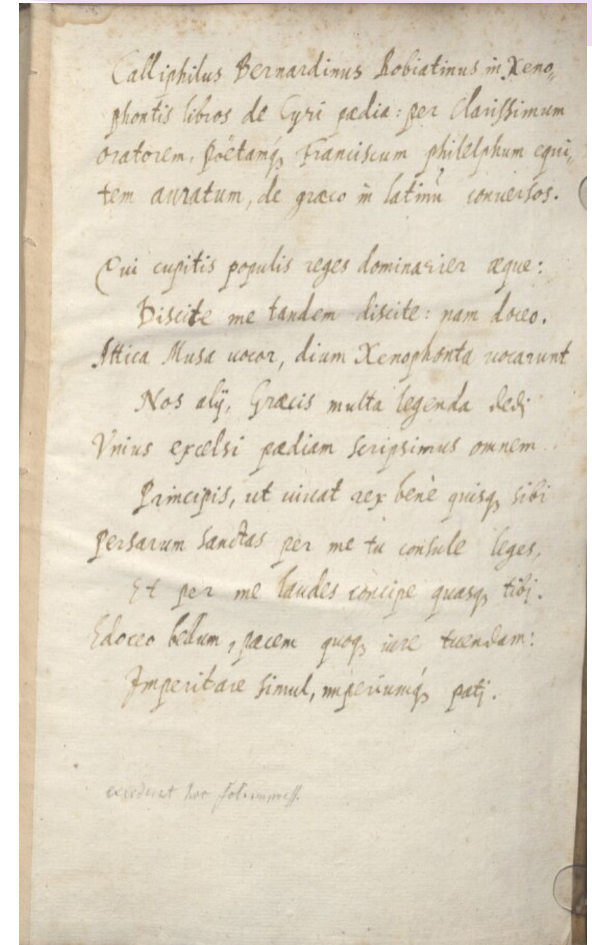 Calliphilus Bernardinus Robiatinus in Xeno„
phontis libros de Cyri pædia: per Clarissimum
oratorem, Poëtamq, Franciscum philelphum equi„
tem auratum, de græco in latinū conuersos.
Qui cupitis populis reges dominarier æque:
Discite me tandem discite: nam doceo.
Attica Musa uocor, dium Xenophonta uocarunt
Nos alÿ, Græcis multa legenda dedj
Vnius excelsi pædiam scripsimus omnem
Principis, ut uiuat rex benè quisq, sibi
Persarum sanctas per me tu consule leges,
Et per me laudes concipe quasq, tibj.
Edoceo bellum, pacem quoq, iure tuendam:
Imperitare simul, imperiumq́, patj.